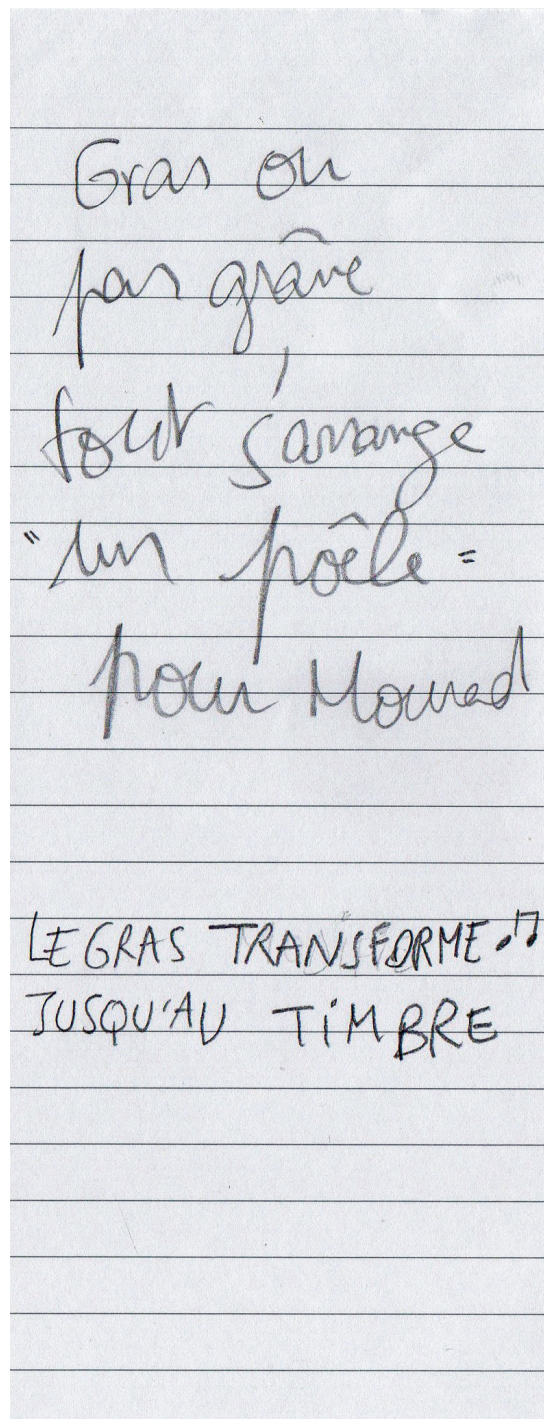 Gras ou
pas grâve
tout s'arrange
"un poêle"
pour Mourad
LE GRAS TRANSFORME
JUSQU'AU TIMBRE